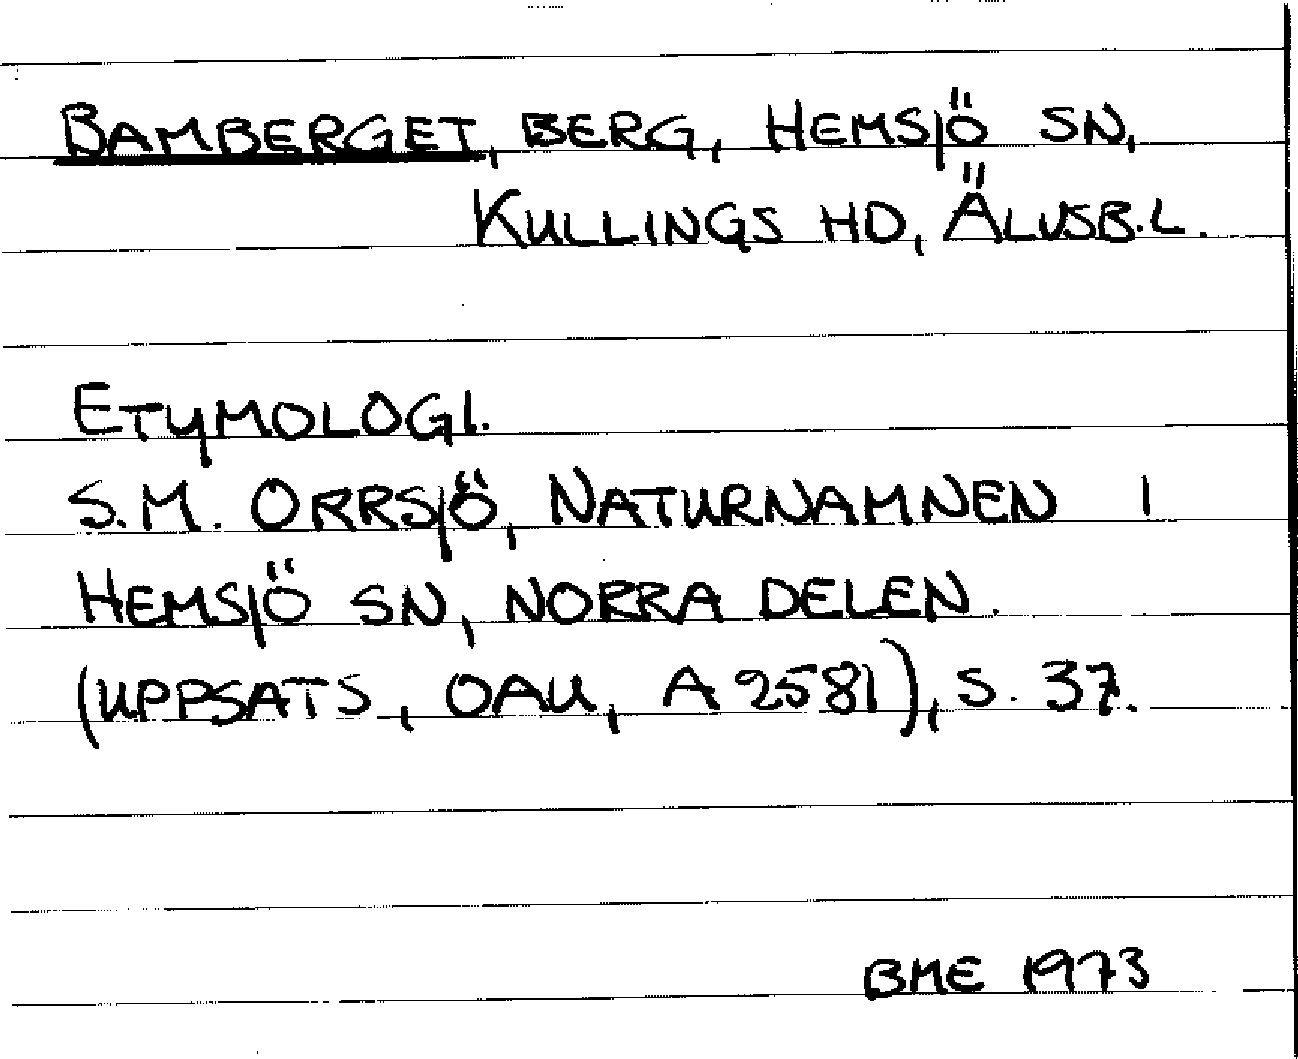 BAMBERGET, BERG, HEMSJÖ SN,
KULLINGS HD, ÄLVSB.L.
ETYMOLOGI.
S.M. ORRSJÖ, NATURNAMNEN I
HEMSJÖ SN, NORRA DELEN.
(UPPSATS, OAU, A 2581), S. 37.
BME 1973